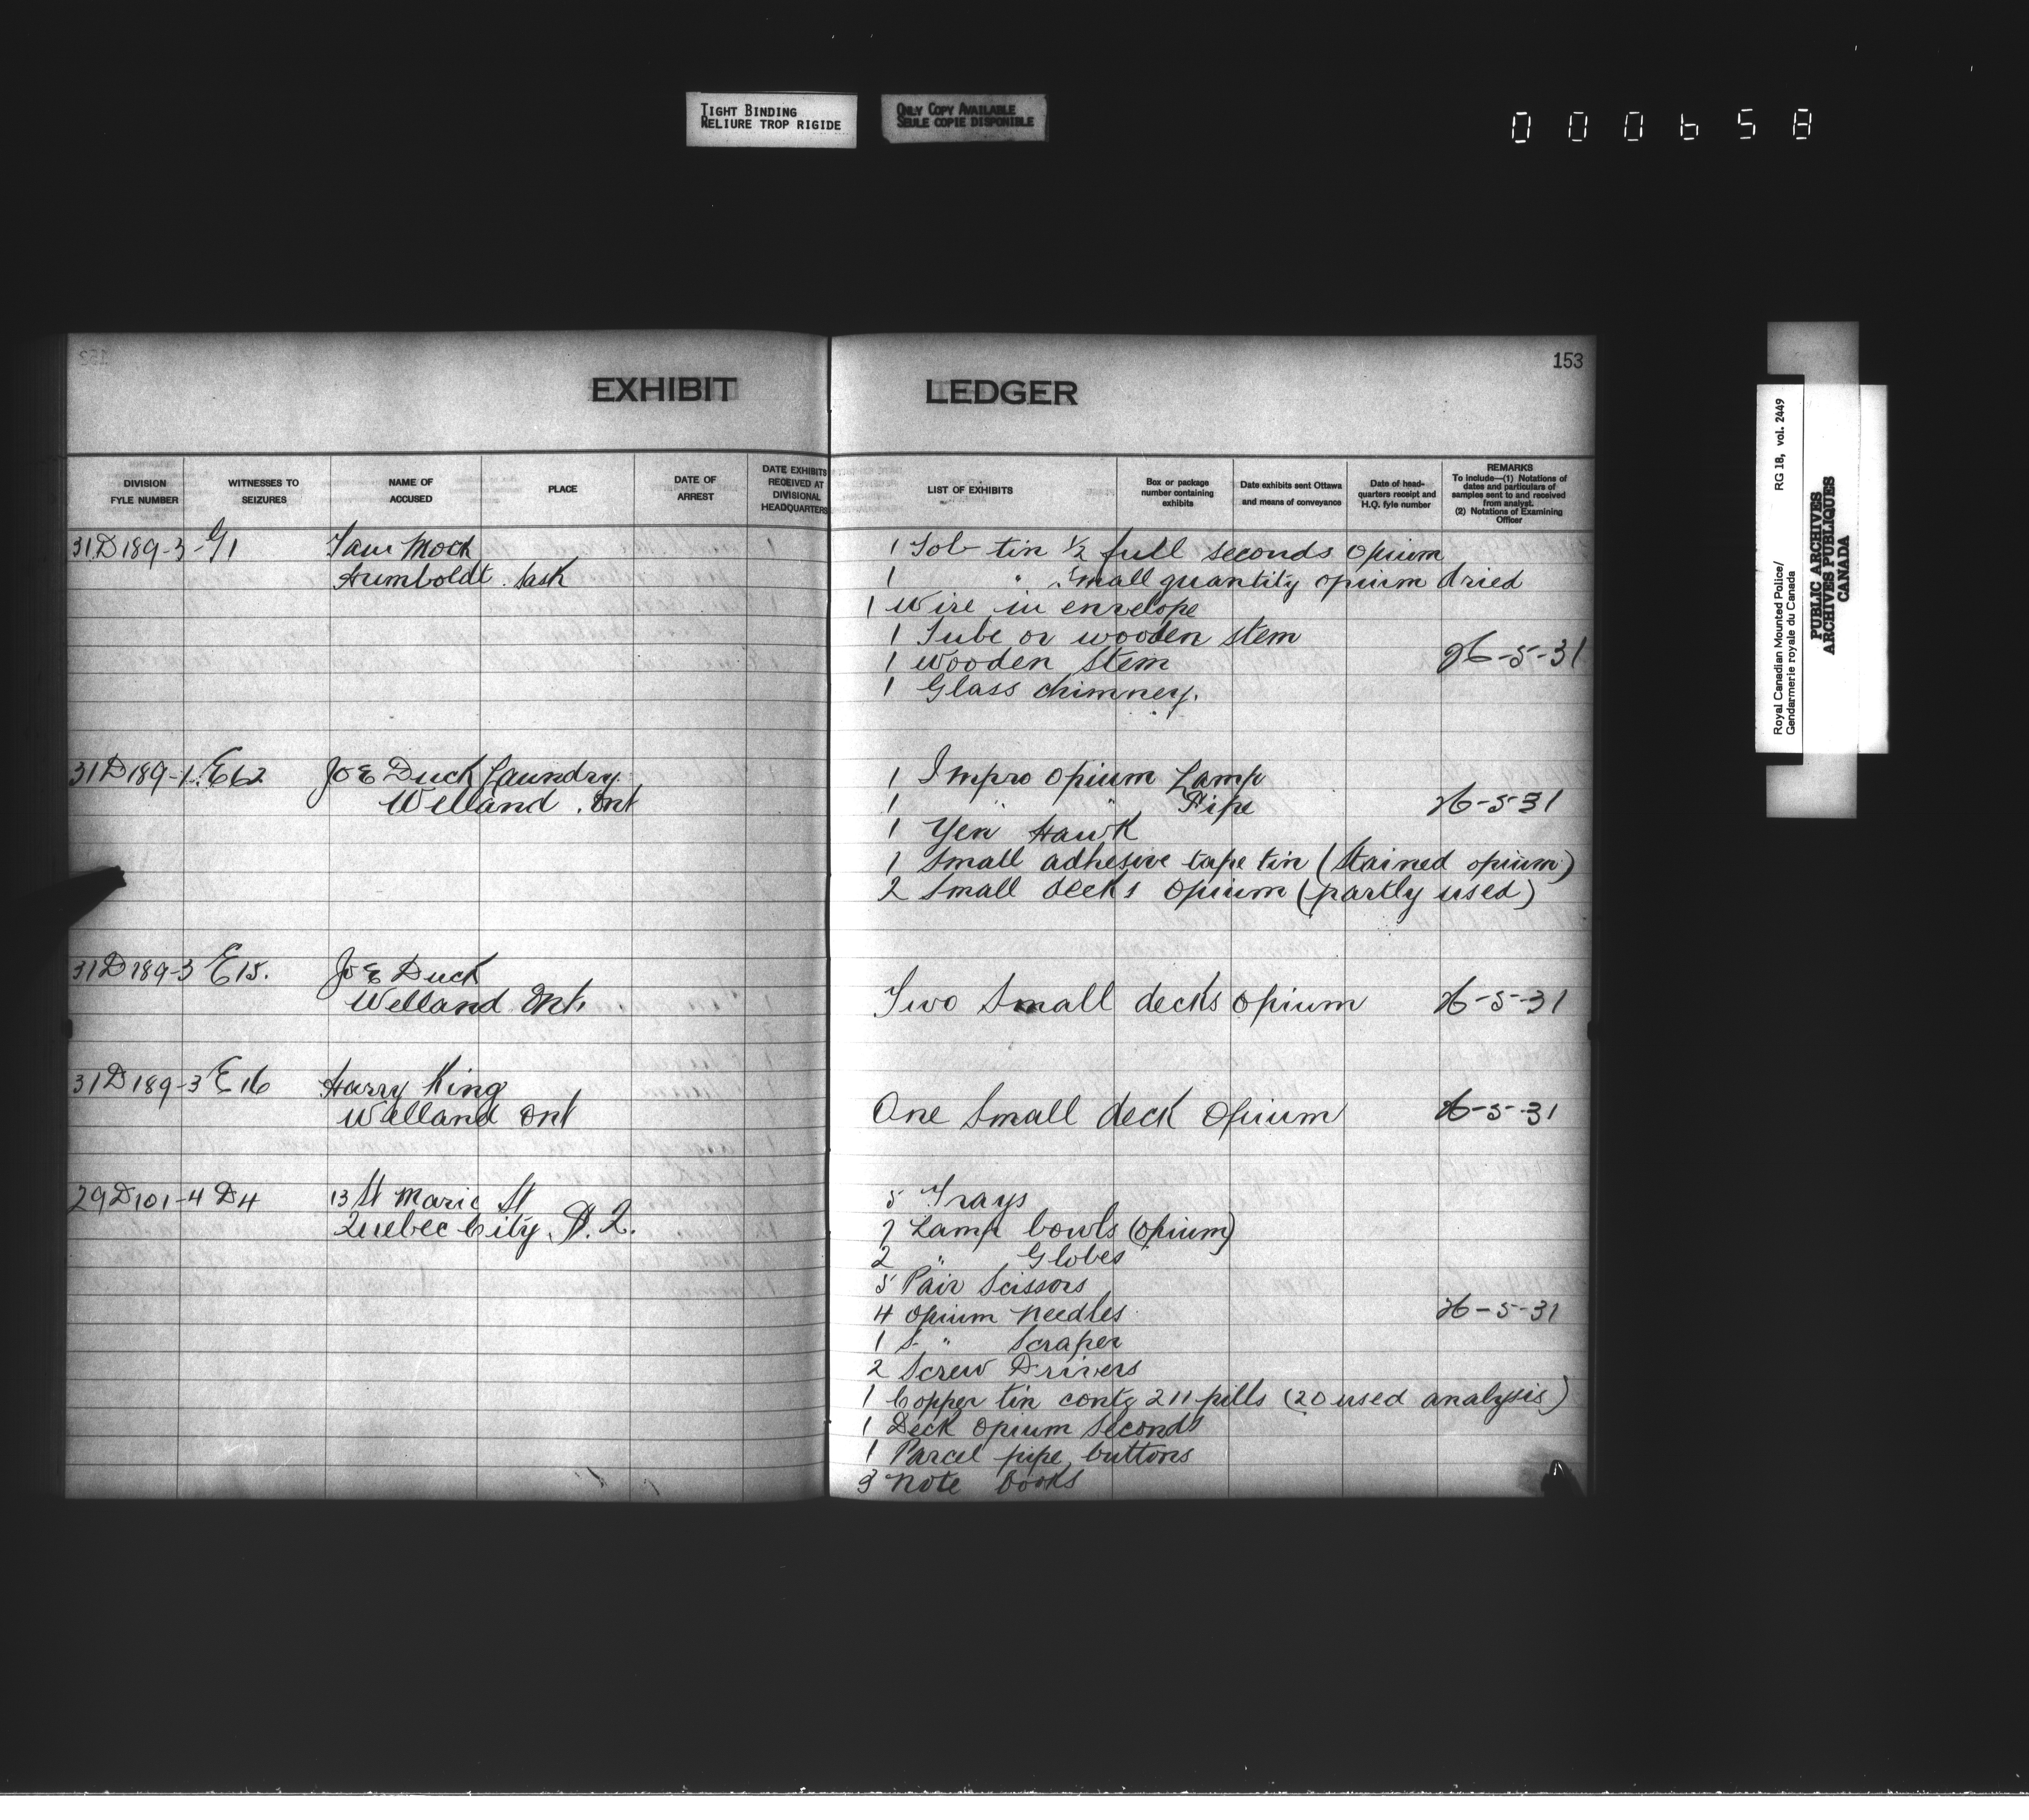 TIGHT BINDING
RELIURE TROP RIGIDE
ONLY COPY AVAILABLE
SEULE COPIE DISPONIBLE
000658
153
EXHIBIT LEDGER
DIVISION FYLE NUMBER
WITNESSES TO SEIZURES
NAME OF ACCUSED
PLACE
DATE OF ARREST
DATE EXHIBITS RECEIVED AT DIVISIONAL HEADQUARTERS
LIST OF EXHIBITS
Box or package number containing exhibits
Date exhibits sent Ottawa and means of conveyance
Date of head-quarters receipt and H.Q. fyle number
REMARKS
To include—(1) Notations of dates and particulars of samples sent to and received from analyst.
(2) Notations of Examining Officer
31D189-3-G1 Sam Mock 1 Tob tin 1/2 full seconds opium
Humboldt Sask 1 " Small quantity opium dried
1 Wire in envelope
1 Tube or wooden stem
1 Wooden Stem 26-5-31
1 Glass chimney.
31D189-1-E62 Joe Duck Laundry 1 Impro opium Lamp
Welland. Ont 1 " " Pipe 26-5-31
1 Yen Hawk
1 Small adhesive tape tin (Stained opium)
2 Small decks opium (partly used)
31D189-3 E15. Joe Duck
Welland Ont. Two Small decks opium 26-5-31
31D189-3 E16 Harry King
Welland Ont One Small deck Opium 26-5-31
29D101-4 D4 13 St Marie St 5 Trays
Quebec City. P.Q. 7 Lamp bowls (opium)
2 " Globes
5 Pair Scissors
4 opium Needles 26-5-31
1 " Scraper
2 Screw Drivers
1 Copper tin contg 211 pills (20 used analysis)
1 Deck opium Seconds
1 Parcel pipe buttons
3 Note books
Royal Canadian Mounted Police/ RG 18, vol. 2449
Gendarmerie royale du Canada
PUBLIC ARCHIVES
ARCHIVES PUBLIQUES
CANADA